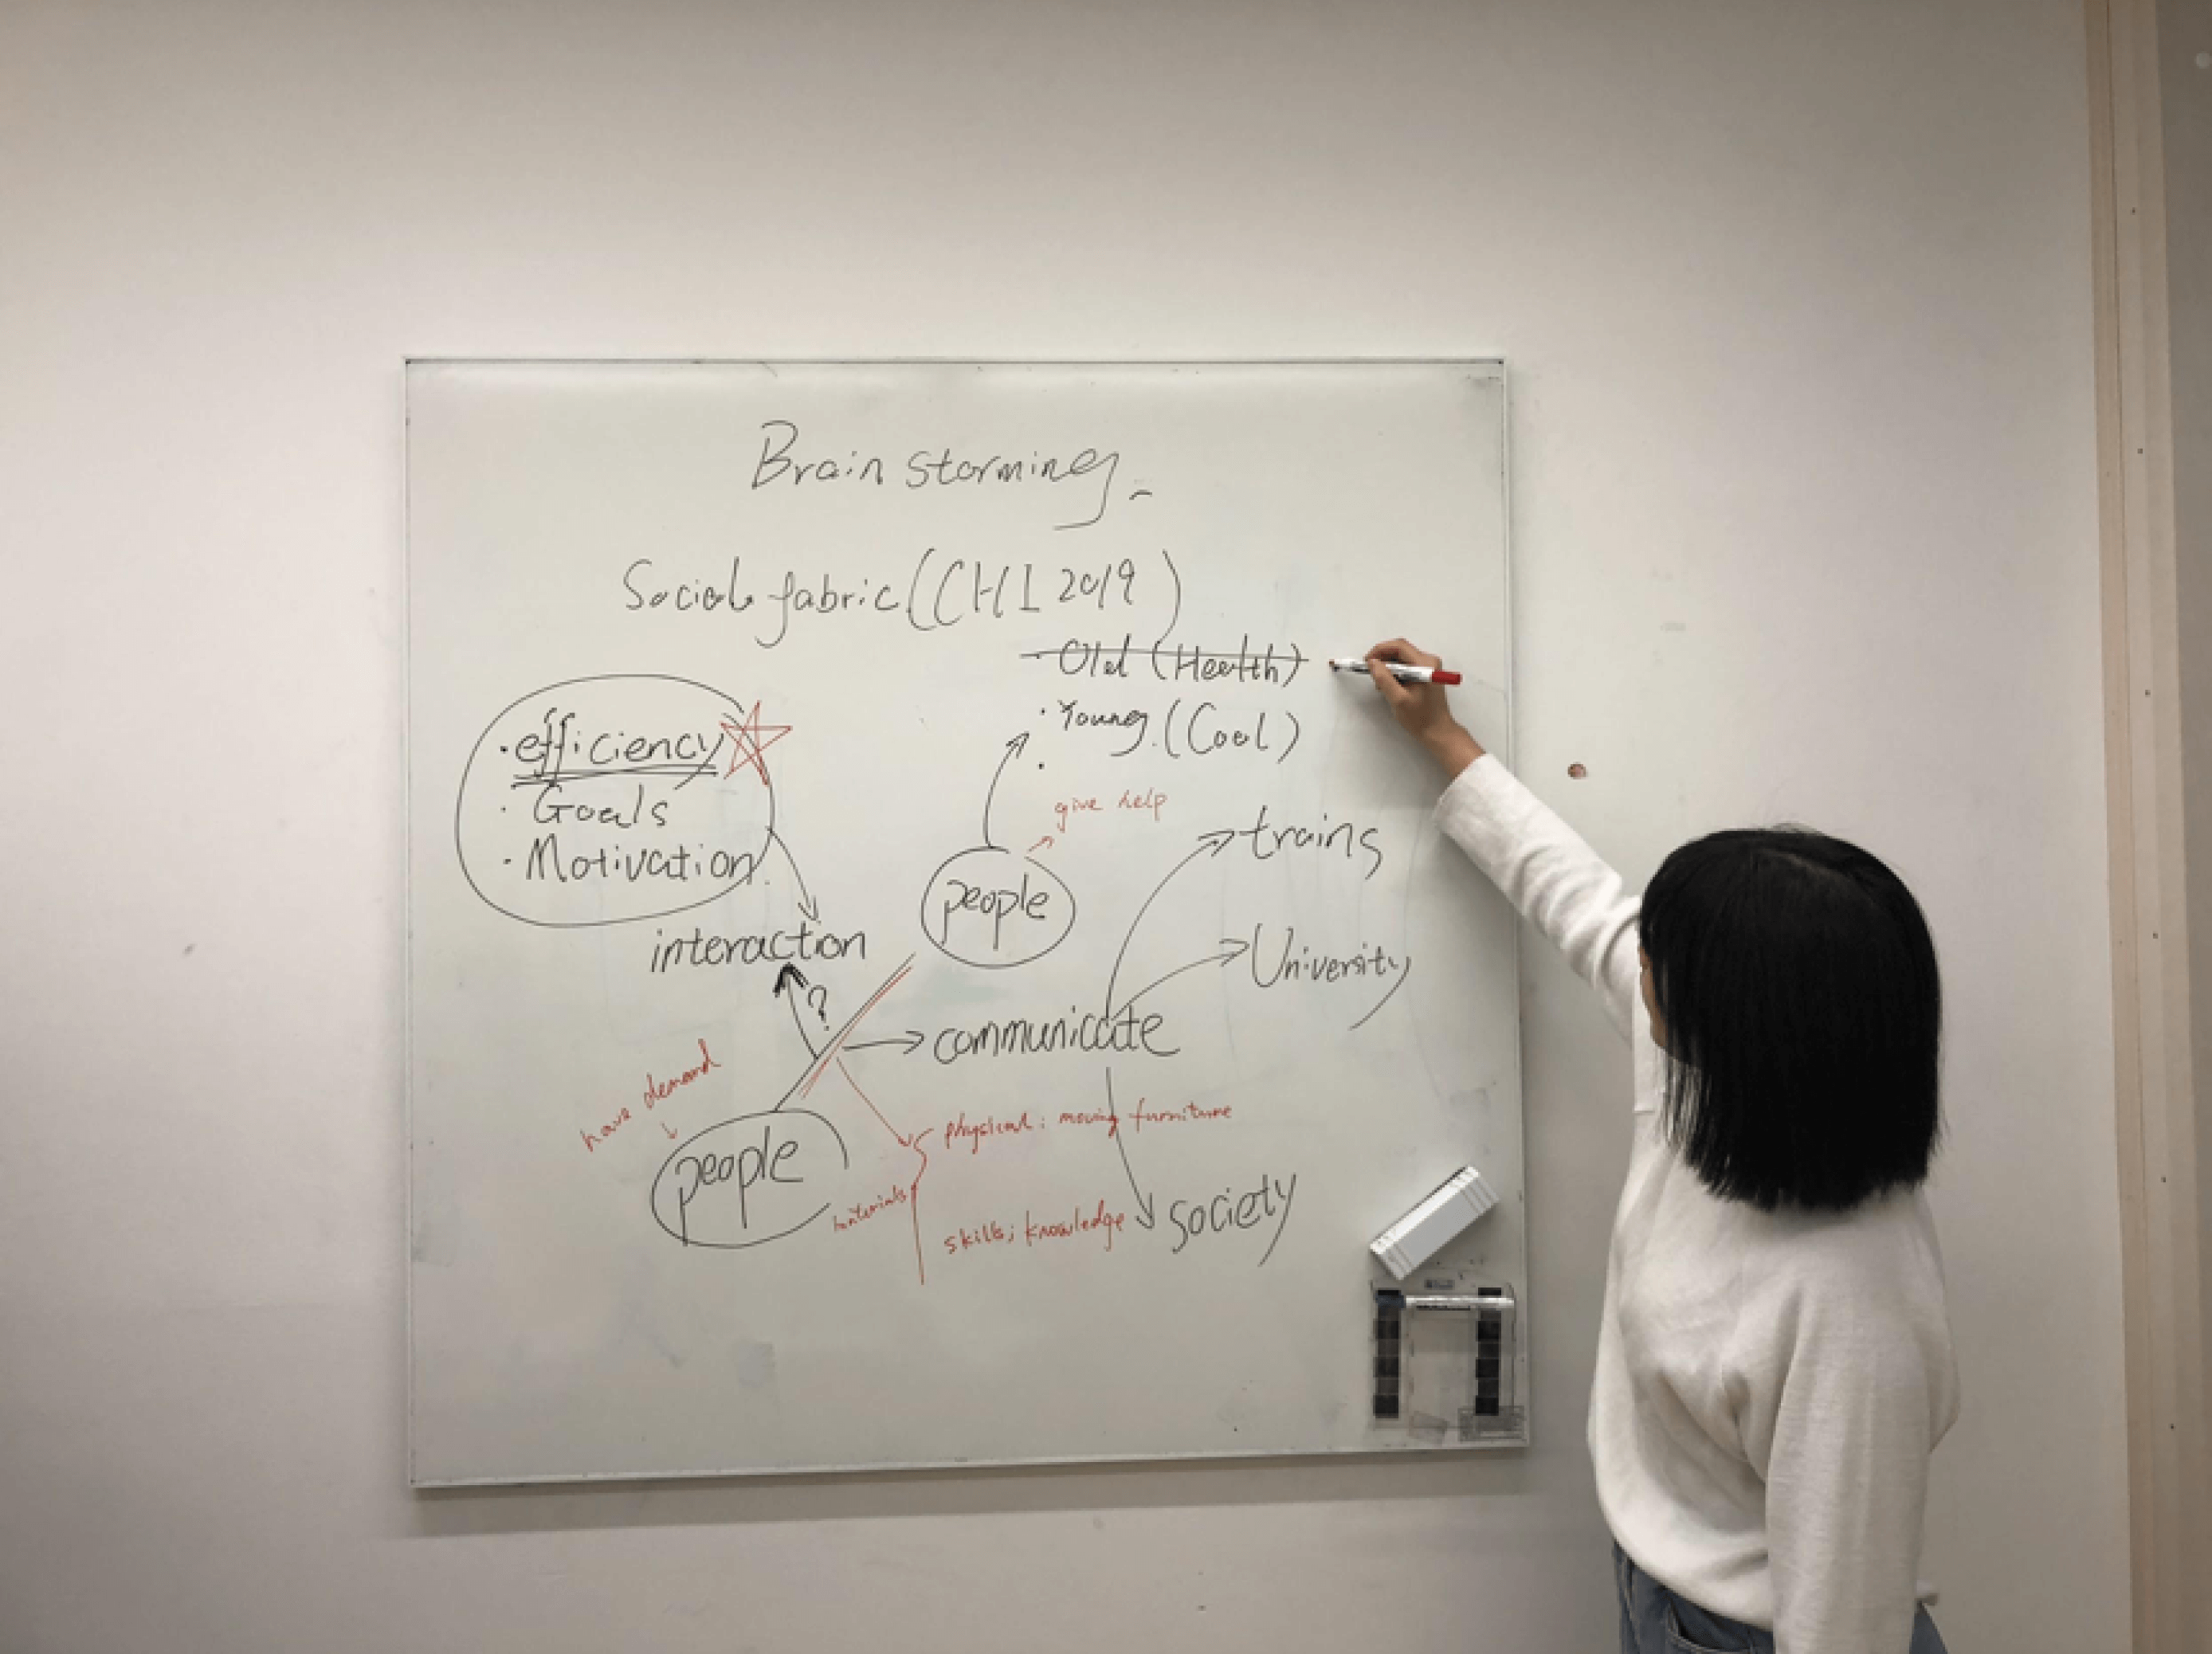 Brain storming
Social fabric (CHI 2019)
· Old (Health)
· Young (Cool)
·
· efficiency
· Goals
· Motivation
give help
trains
people
interaction
University
?
communicate
have demand
physical: moving furniture
people
materials
skills; knowledge
society